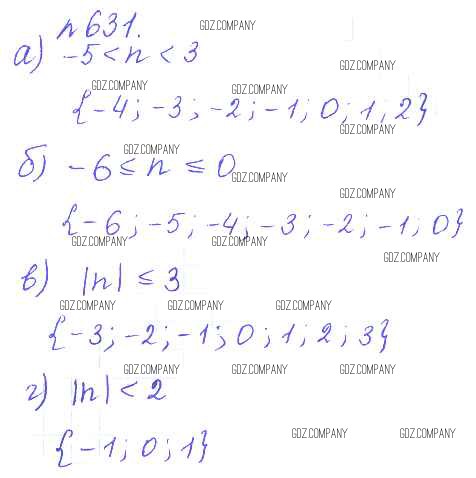 n 631.
а) -5 < n < 3
{-4; -3; -2; -1; 0; 1; 2}
б) -6 ≤ n ≤ 0
{-6; -5; -4; -3; -2; -1; 0}
в) |n| ≤ 3
{-3; -2; -1; 0; 1; 2; 3}
г) |n| < 2
{-1; 0; 1}
GDZ.COMPANY
GDZ.COMPANY
GDZ.COMPANY GDZ.COMPANY
GDZ.COMPANY
GDZ.COMPANY GDZ.COMPANY
GDZ.COMPANY
GDZ.COMPANY GDZ.COMPANY
GDZ.COMPANY
GDZ.COMPANY GDZ.COMPANY GDZ.COMPANY
GDZ.COMPANY GDZ.COMPANY GDZ.COMPANY
GDZ.COMPANY GDZ.COMPANY